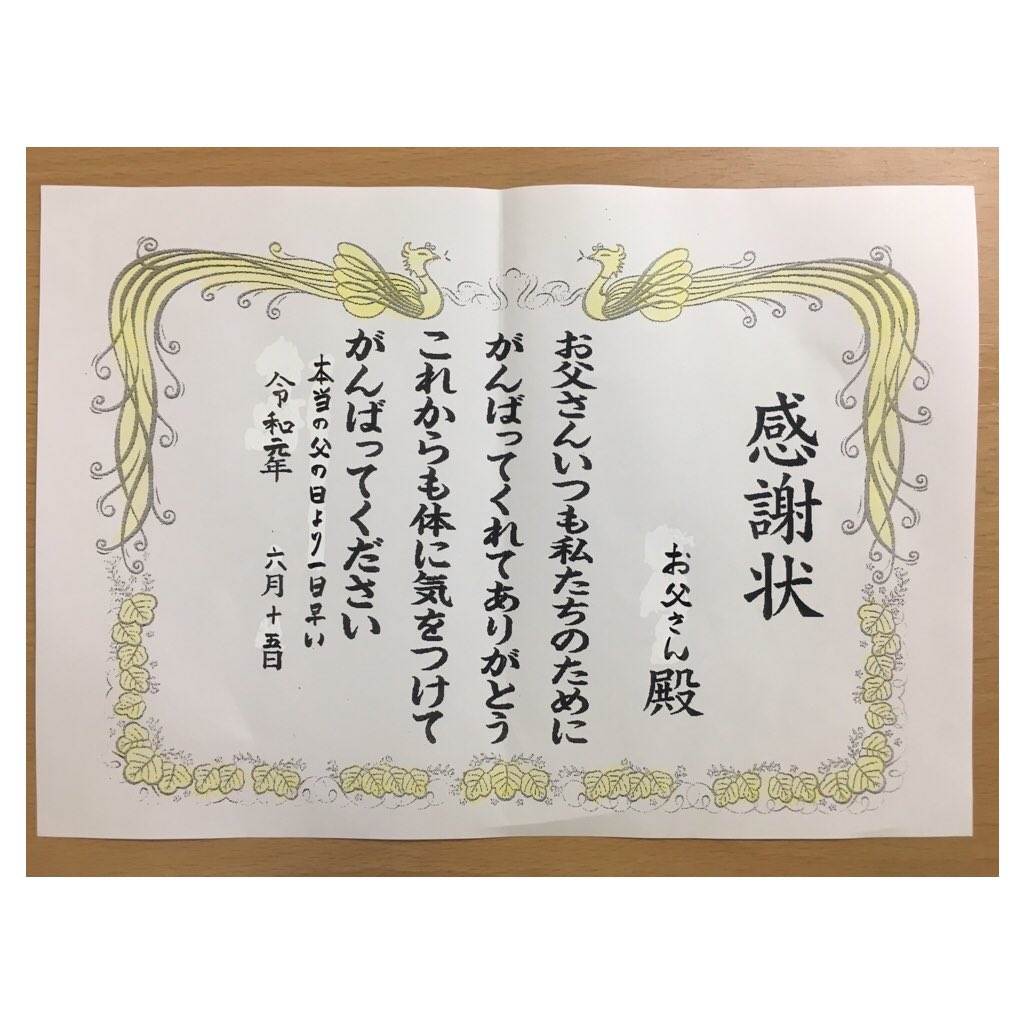 感謝状
お父さん殿
お父さんいつも私たちのために
がんばってくれてありがとう
これからも体に気をつけて
がんばってください
本当の父の日より一日早い
令和元年 六月十五日